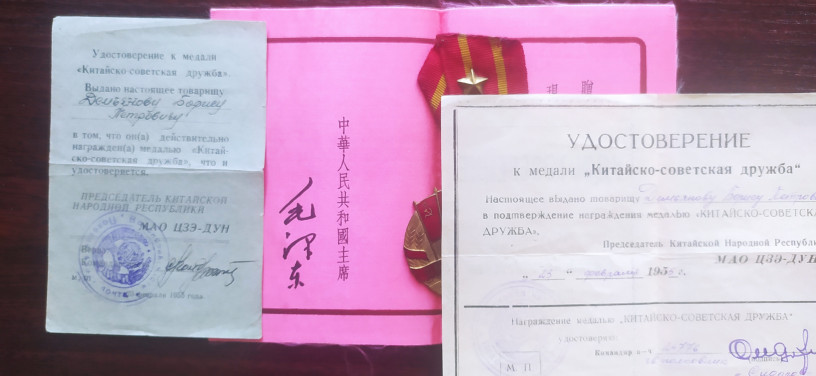 Удостоверение к медали
«Китайско-советская дружба».
Выдано настоящее товарищу
Демьянову Борису
Петровичу
в том, что он(а) действительно
награжден(а) медалью «Китай-
ско-советская дружба», что и
удостоверяется.
ПРЕДСЕДАТЕЛЬ КИТАЙСКОЙ
НАРОДНОЙ РЕСПУБЛИКИ
МАО ЦЗЭ-ДУН
中華人民共和國主席
毛澤东
УДОСТОВЕРЕНИЕ
к медали „Китайско-советская дружба“
Настоящее выдано товарищу Демьянову Борису Петрови
в подтверждение награждения медалью «КИТАЙСКО-СОВЕТСКА
ДРУЖБА».
Председатель Китайской Народной Республи
МАО ЦЗЭ-ДУН
" 23 " февраля 195 г.
Награждение медалью „КИТАЙСКО-СОВЕТСКАЯ ДРУЖБА"
удостоверяю:
Командир в-ч
М П